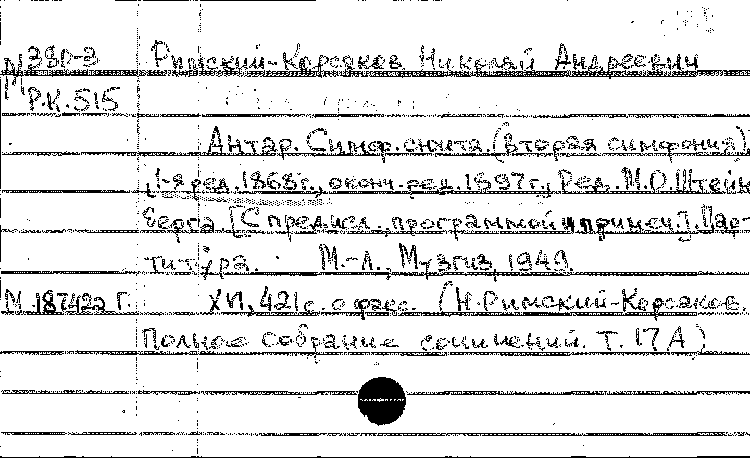 М 38р-3 Римский-Корсаков Николай Андреевич
Р.К. 515
Антар. Симф. сюита. (вторая симфония),
1-я ред. 1868 г., оконч. ред. 1897 г., Ред. М.О. Штейн
берга [С предисл., программой и примеч.]. Пар
титура. М.-Л., Музгиз, 1949.
М 187422 Г. XVI, 421 с. с факс. (Н. Римский-Корсаков.
Полное собрание сочинений. Т. 17А)